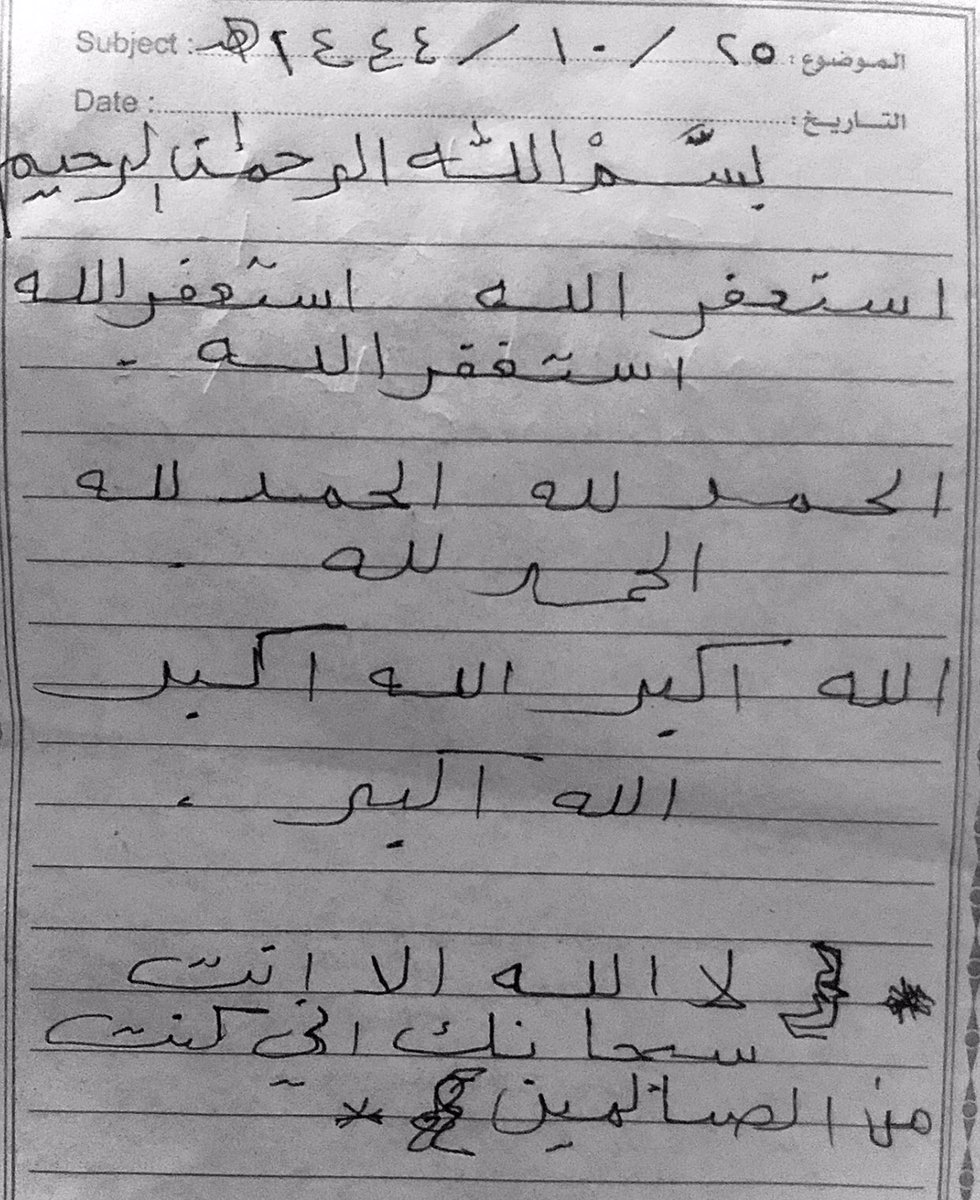 Subject : ٢٥ / ١٠ / ٤٤٤٢هـ الموضوع :
Date : التاريخ :
بسم الله الرحمن الرحيم
استعفر الله استعفر الله
استغفر الله .
الحمد لله الحمد لله
الحمد لله .
الله اكبر الله اكبر
الله اكبر .
* { لا الله الا انت
سبحانك اني كنت
من الصالمين } *